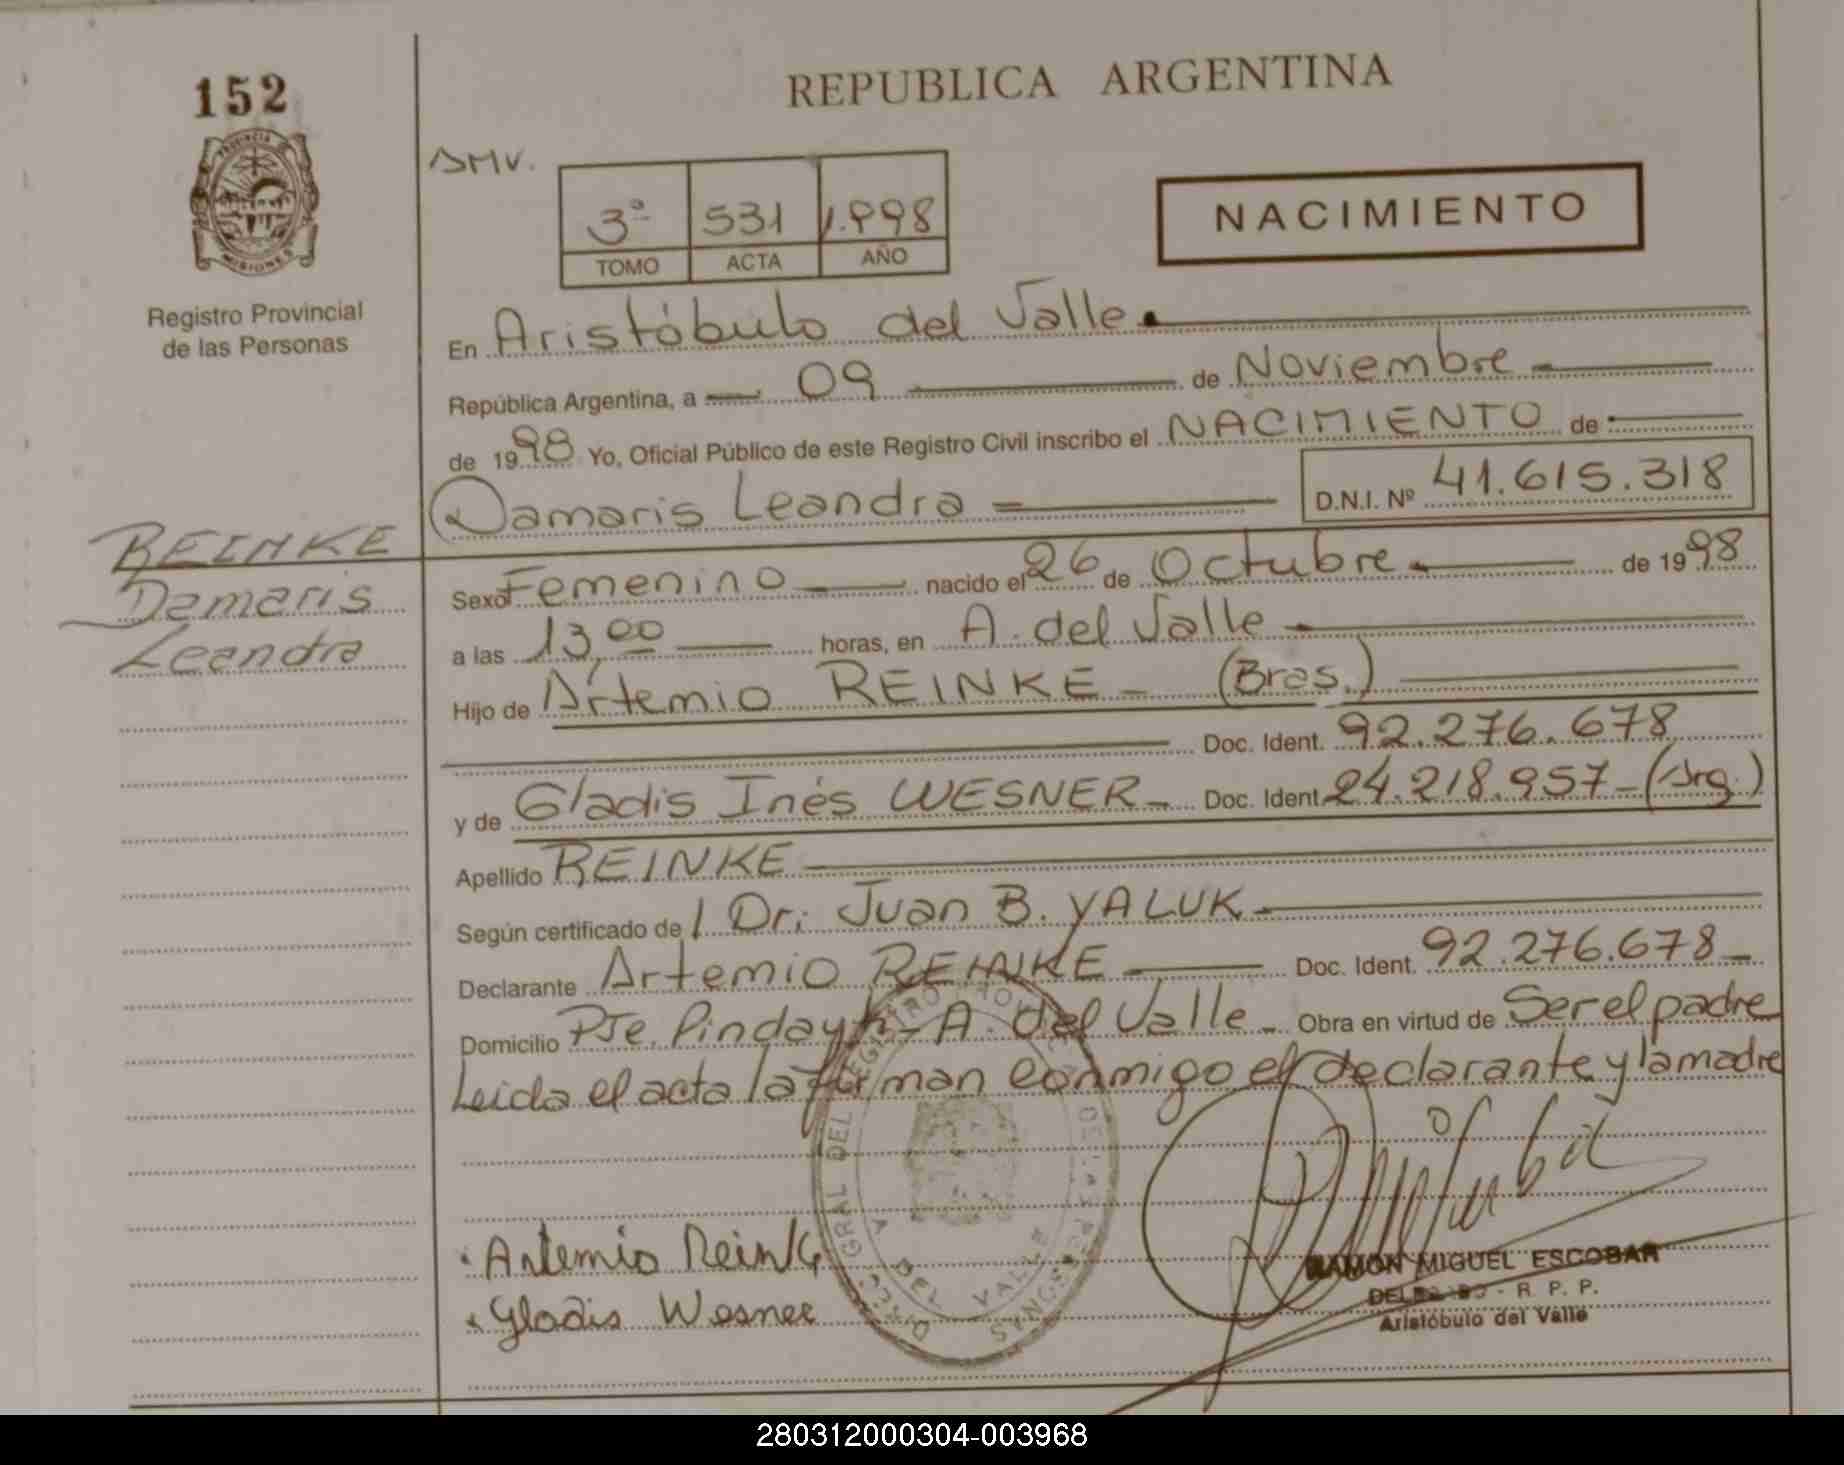 152
PROVINCIA DE
MISIONES
Registro Provincial
de las Personas
REPUBLICA ARGENTINA
3ª 531 1.998
TOMO ACTA AÑO
NACIMIENTO
En Aristóbulo del Valle
República Argentina, a 09 de Noviembre
de 1998 Yo, Oficial Público de este Registro Civil inscribo el NACIMIENTO de
Damaris Leandra D.N.I. Nº 41.615.318
REINKE
Damaris
Leandra
Sexo Femenino nacido el 26 de Octubre de 1998
a las 13,00 horas, en A. del Valle
Hijo de Artemio REINKE - (Bras.)
Doc. Ident. 92.276.678
y de Gladis Inés WESNER - Doc. Ident. 24.218.957 - (Arg.)
Apellido REINKE
Según certificado de / Dr: Juan B. YALUK
Declarante Artemio REINKE Doc. Ident. 92.276.678
Domicilio Pje. Pindayti - A. del Valle - Obra en virtud de Ser el padre
Leida el acta la firman conmigo el declarante y la madre
Artemio Reinke
Gladis Wesner
DIREC. GRAL DEL REGISTRO PROVINCIAL DE LAS PERSONAS
A. DEL VALLE
RAMON MIGUEL ESCOBAR
DELEGADO - R. P. P.
Aristóbulo del Valle
280312000304-003968